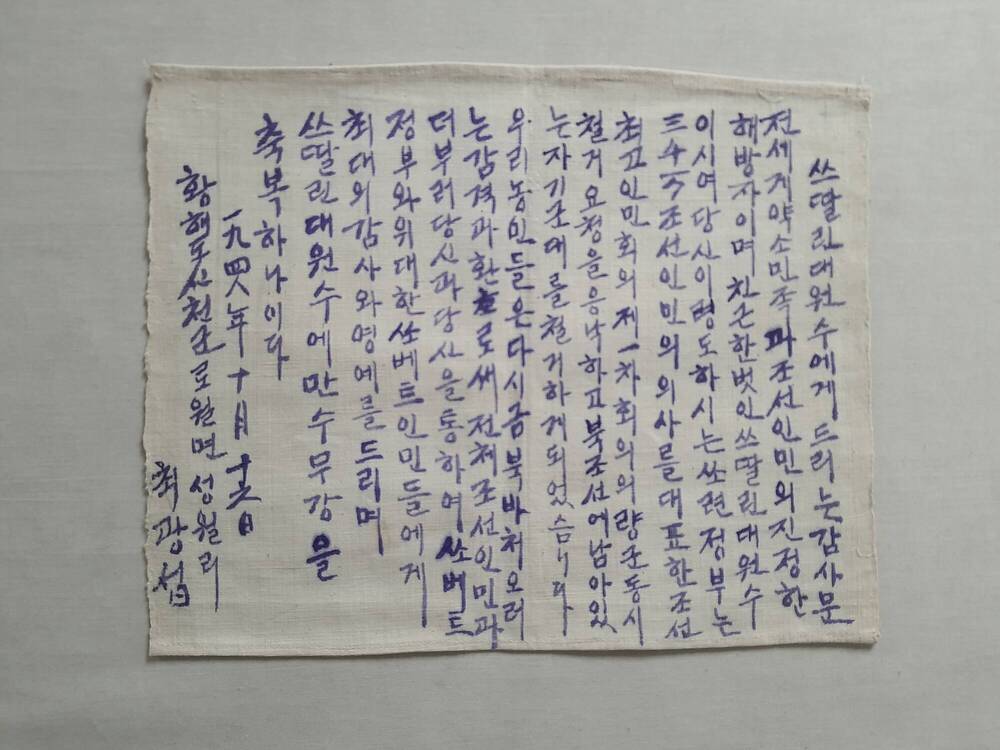 쓰딸린대원수에게드리는감사문
전세계약소민족과조선인민의진정한
해방자이며친근한벗인쓰딸린대원수
이시여당신이령도하시는쏘련정부는
조선인민의의사를대표한조선
최고인민회의제一차회의의량군동시
철거요청을응낙하고북조선에남아있
는자기군대를철거하게되었슴니다
우리농민들은다시금북바처오러
는감격과환호로써전체조선인민과
더부러당신과당신을통하여쏘베트
정부와위대한쏘베트인민들에게
최대의감사와영예를드리며
쓰딸린대원수에만수무강을
축복하나이다
一九四八年十月十六日
황해도신천군로원면성월리
최광섭